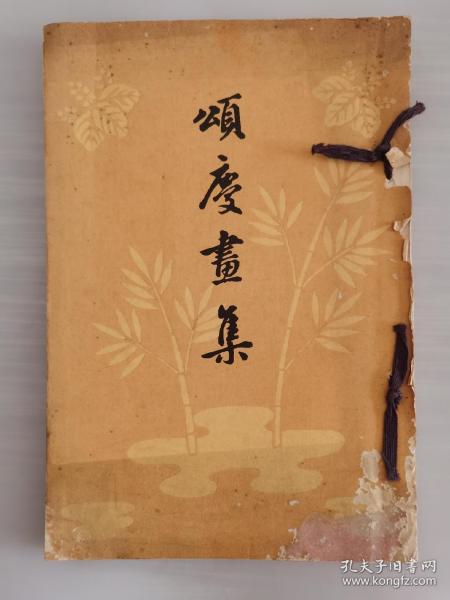 頌慶畫集
孔夫子旧书网
www.kongfz.com